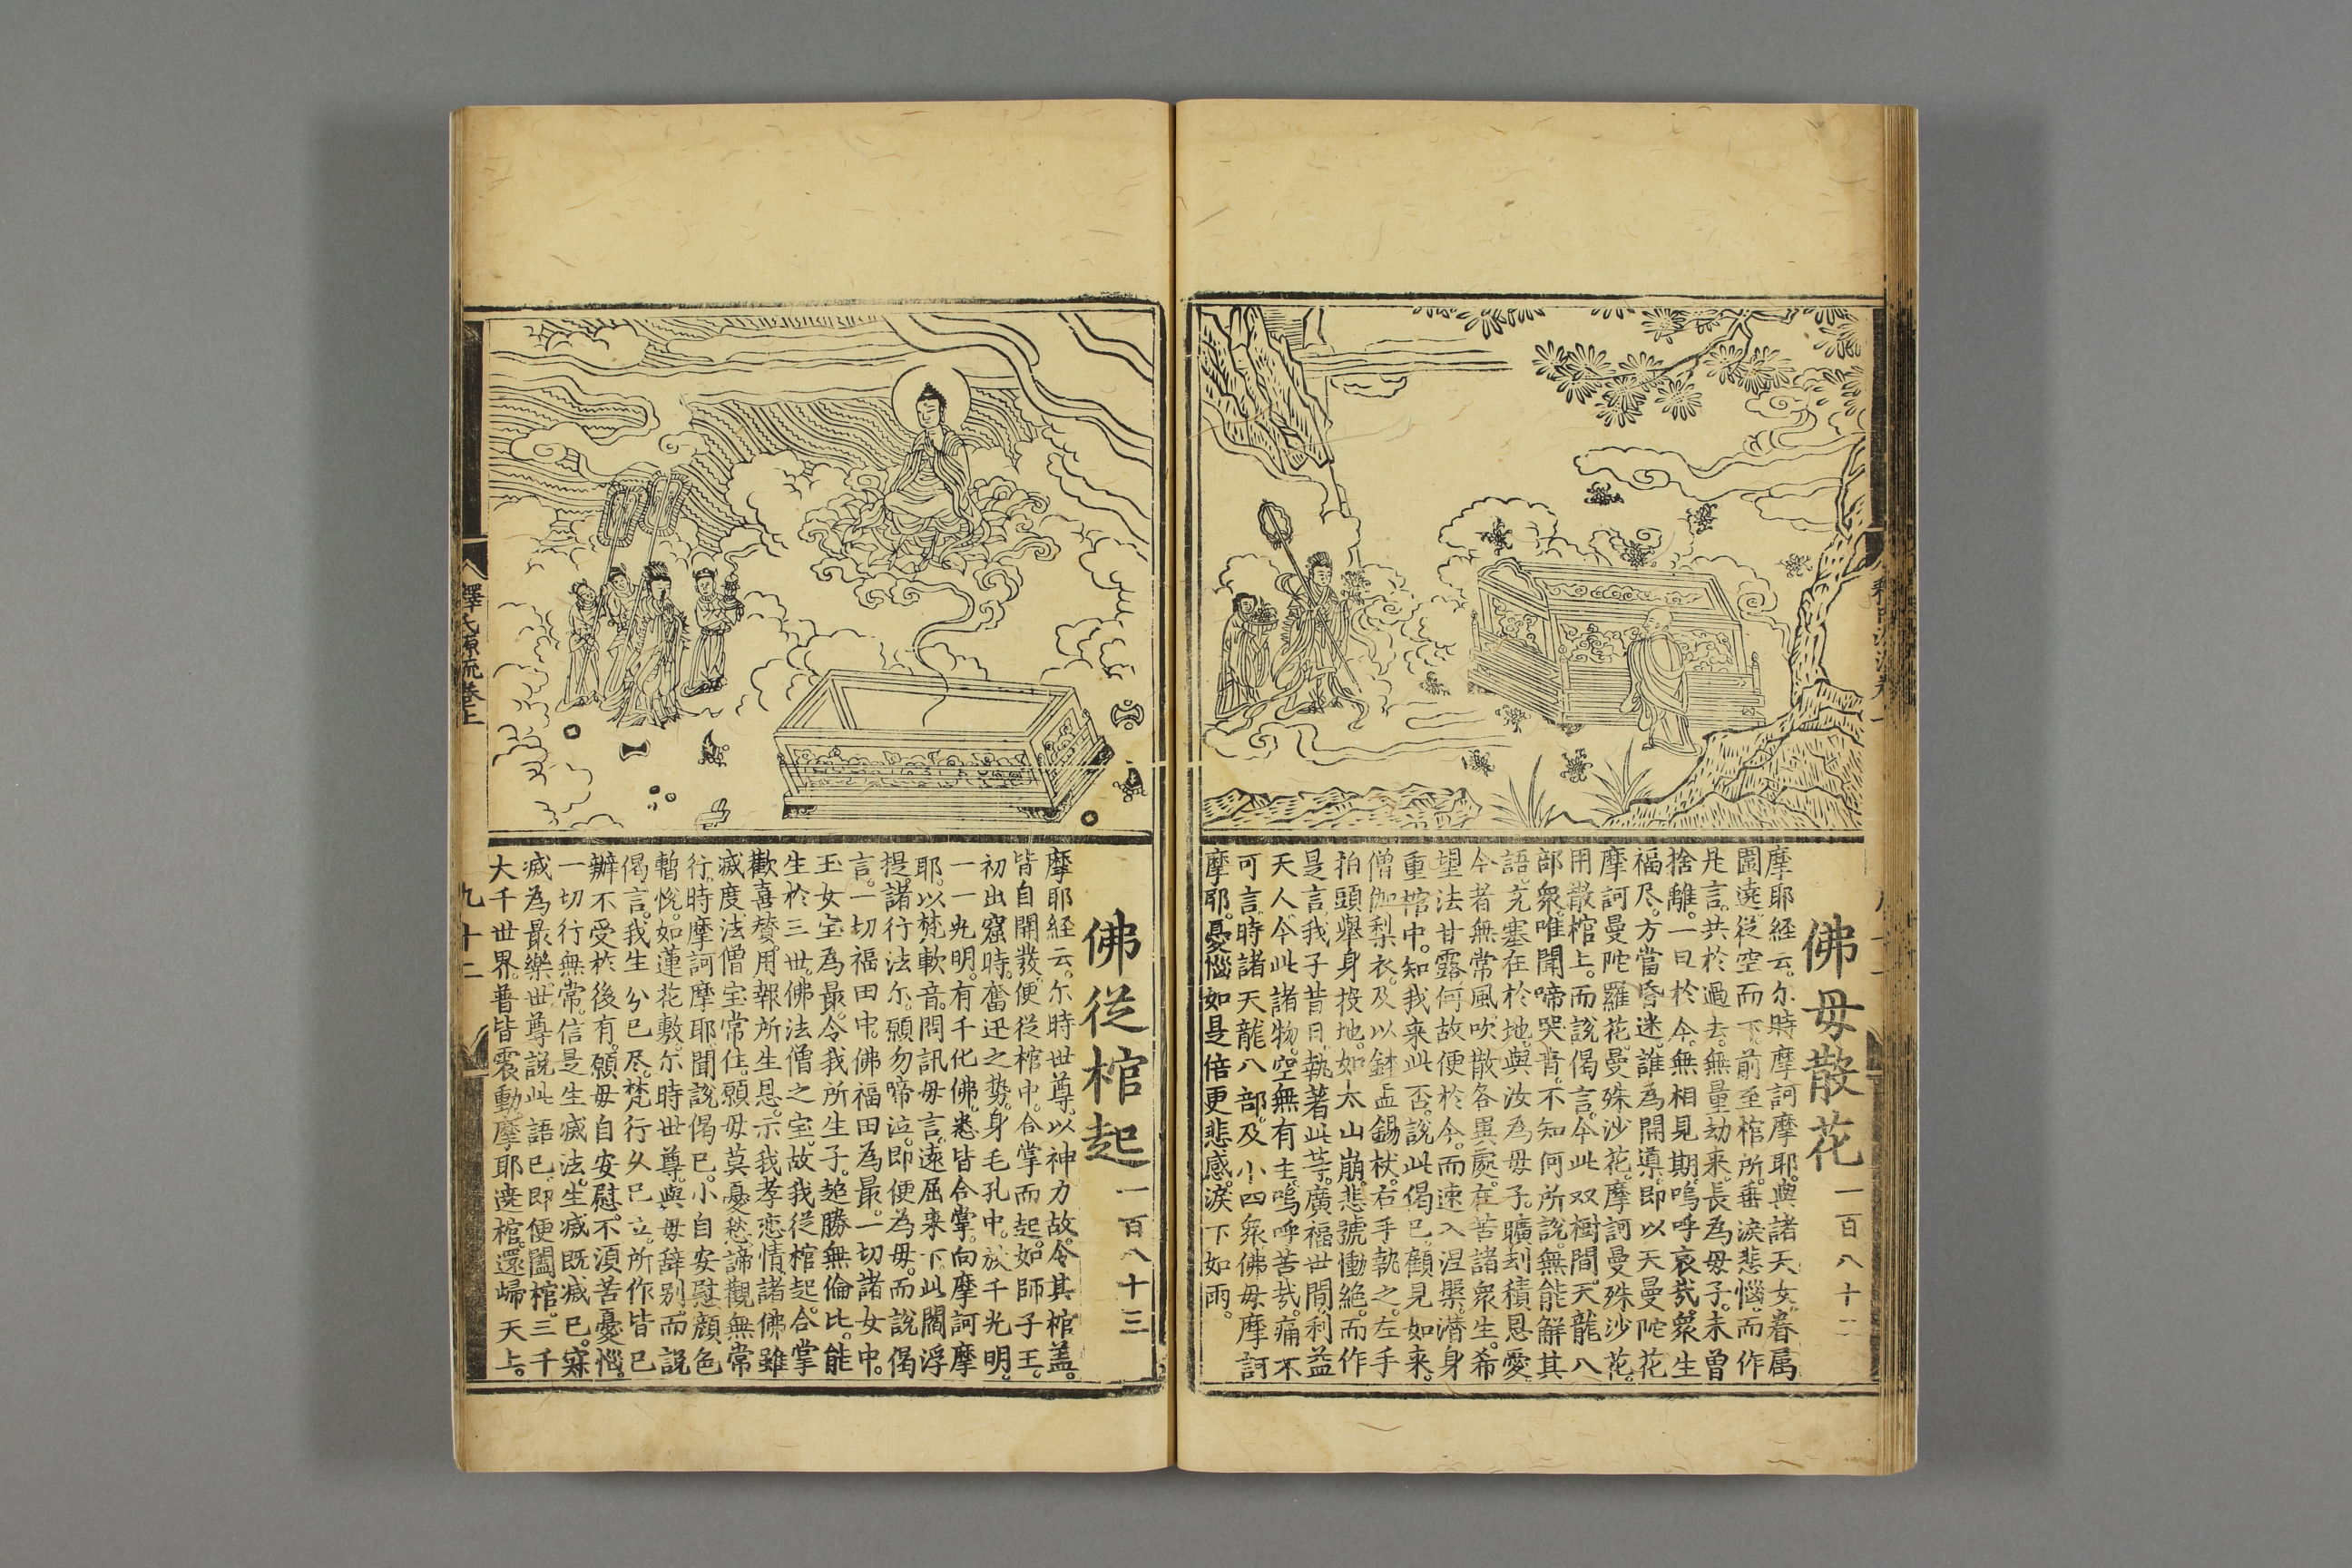 佛母散花 一百八十二
摩耶経云。尔時摩訶摩耶。與諸天女。眷属
圍遶。従空而下。前至棺所。垂淚悲惱。而作
是言。共於過去。無量劫来。長為母子。未曽
捨離。一旦於今。無相見期。嗚呼哀哉。衆生
福尽。方當昏迷。誰為開導。即以天曼陀花
摩訶曼陀羅花。曼殊沙花。摩訶曼殊沙花。
用散棺上。而說偈言。今此双樹間。天龍八
部衆。唯聞啼哭音。不知何所說。無能解其
語。充塞在於地。與汝為母子。曠刦積恩愛。
今者無常風。吹散各異處。在苦諸衆生。希
望法甘露。何故便於今。而速入涅槃。潜身
重棺中。知我来此否。說此偈已。顧見如来。
僧伽梨衣。及以鉢盂錫杖。右手執之。左手
拍頭。舉身投地。如太山崩。悲號慟絶。而作
是言。我子昔日。執著此等。廣福世間。利益
天人。今此諸物。空無有主。嗚呼苦哉。痛不
可言。時諸天龍八部。及小四衆。佛母摩訶
摩耶。憂惱如是。倍更悲感。淚下如雨。
佛従棺起 一百八十三
摩耶経云。尔時世尊。以神力故。令其棺盖。
皆自開發。便従棺中。合掌而起。如師子王。
初出窟時。奮迅之勢。身毛孔中。放千光明。
一一光明。有千化佛。悉皆合掌。向摩訶摩
耶。以梵軟音。問訊母言。遠屈来下。此閻浮
提。諸行法尔。願勿啼泣。即便為母。而說偈
言。一切福田中。佛福田為最。一切諸女中。
玉女宝為最。今我所生子。超勝無倫比。能
生於三世。佛法僧之宝。故我従棺起。合掌
歡喜賛。用報所生恩。示我孝恋情。諸佛雖
滅度。法僧宝常住。願母莫憂愁。諦觀無常
行。時摩訶摩耶。聞說偈已。小自安慰。顔色
暫悅。如蓮花敷。尔時世尊。與母辞别。而說
偈言。我生分已尽。梵行久已立。所作皆已
辦。不受於後有。願母自安慰。不須苦憂惱。
一切行無常。信是生滅法。生滅既滅已。寂
滅為最樂。世尊說此語已。即便闔棺。三千
大千世界。普皆震動。摩耶遶棺。還歸天上。
釋氏源流巻上
九十二